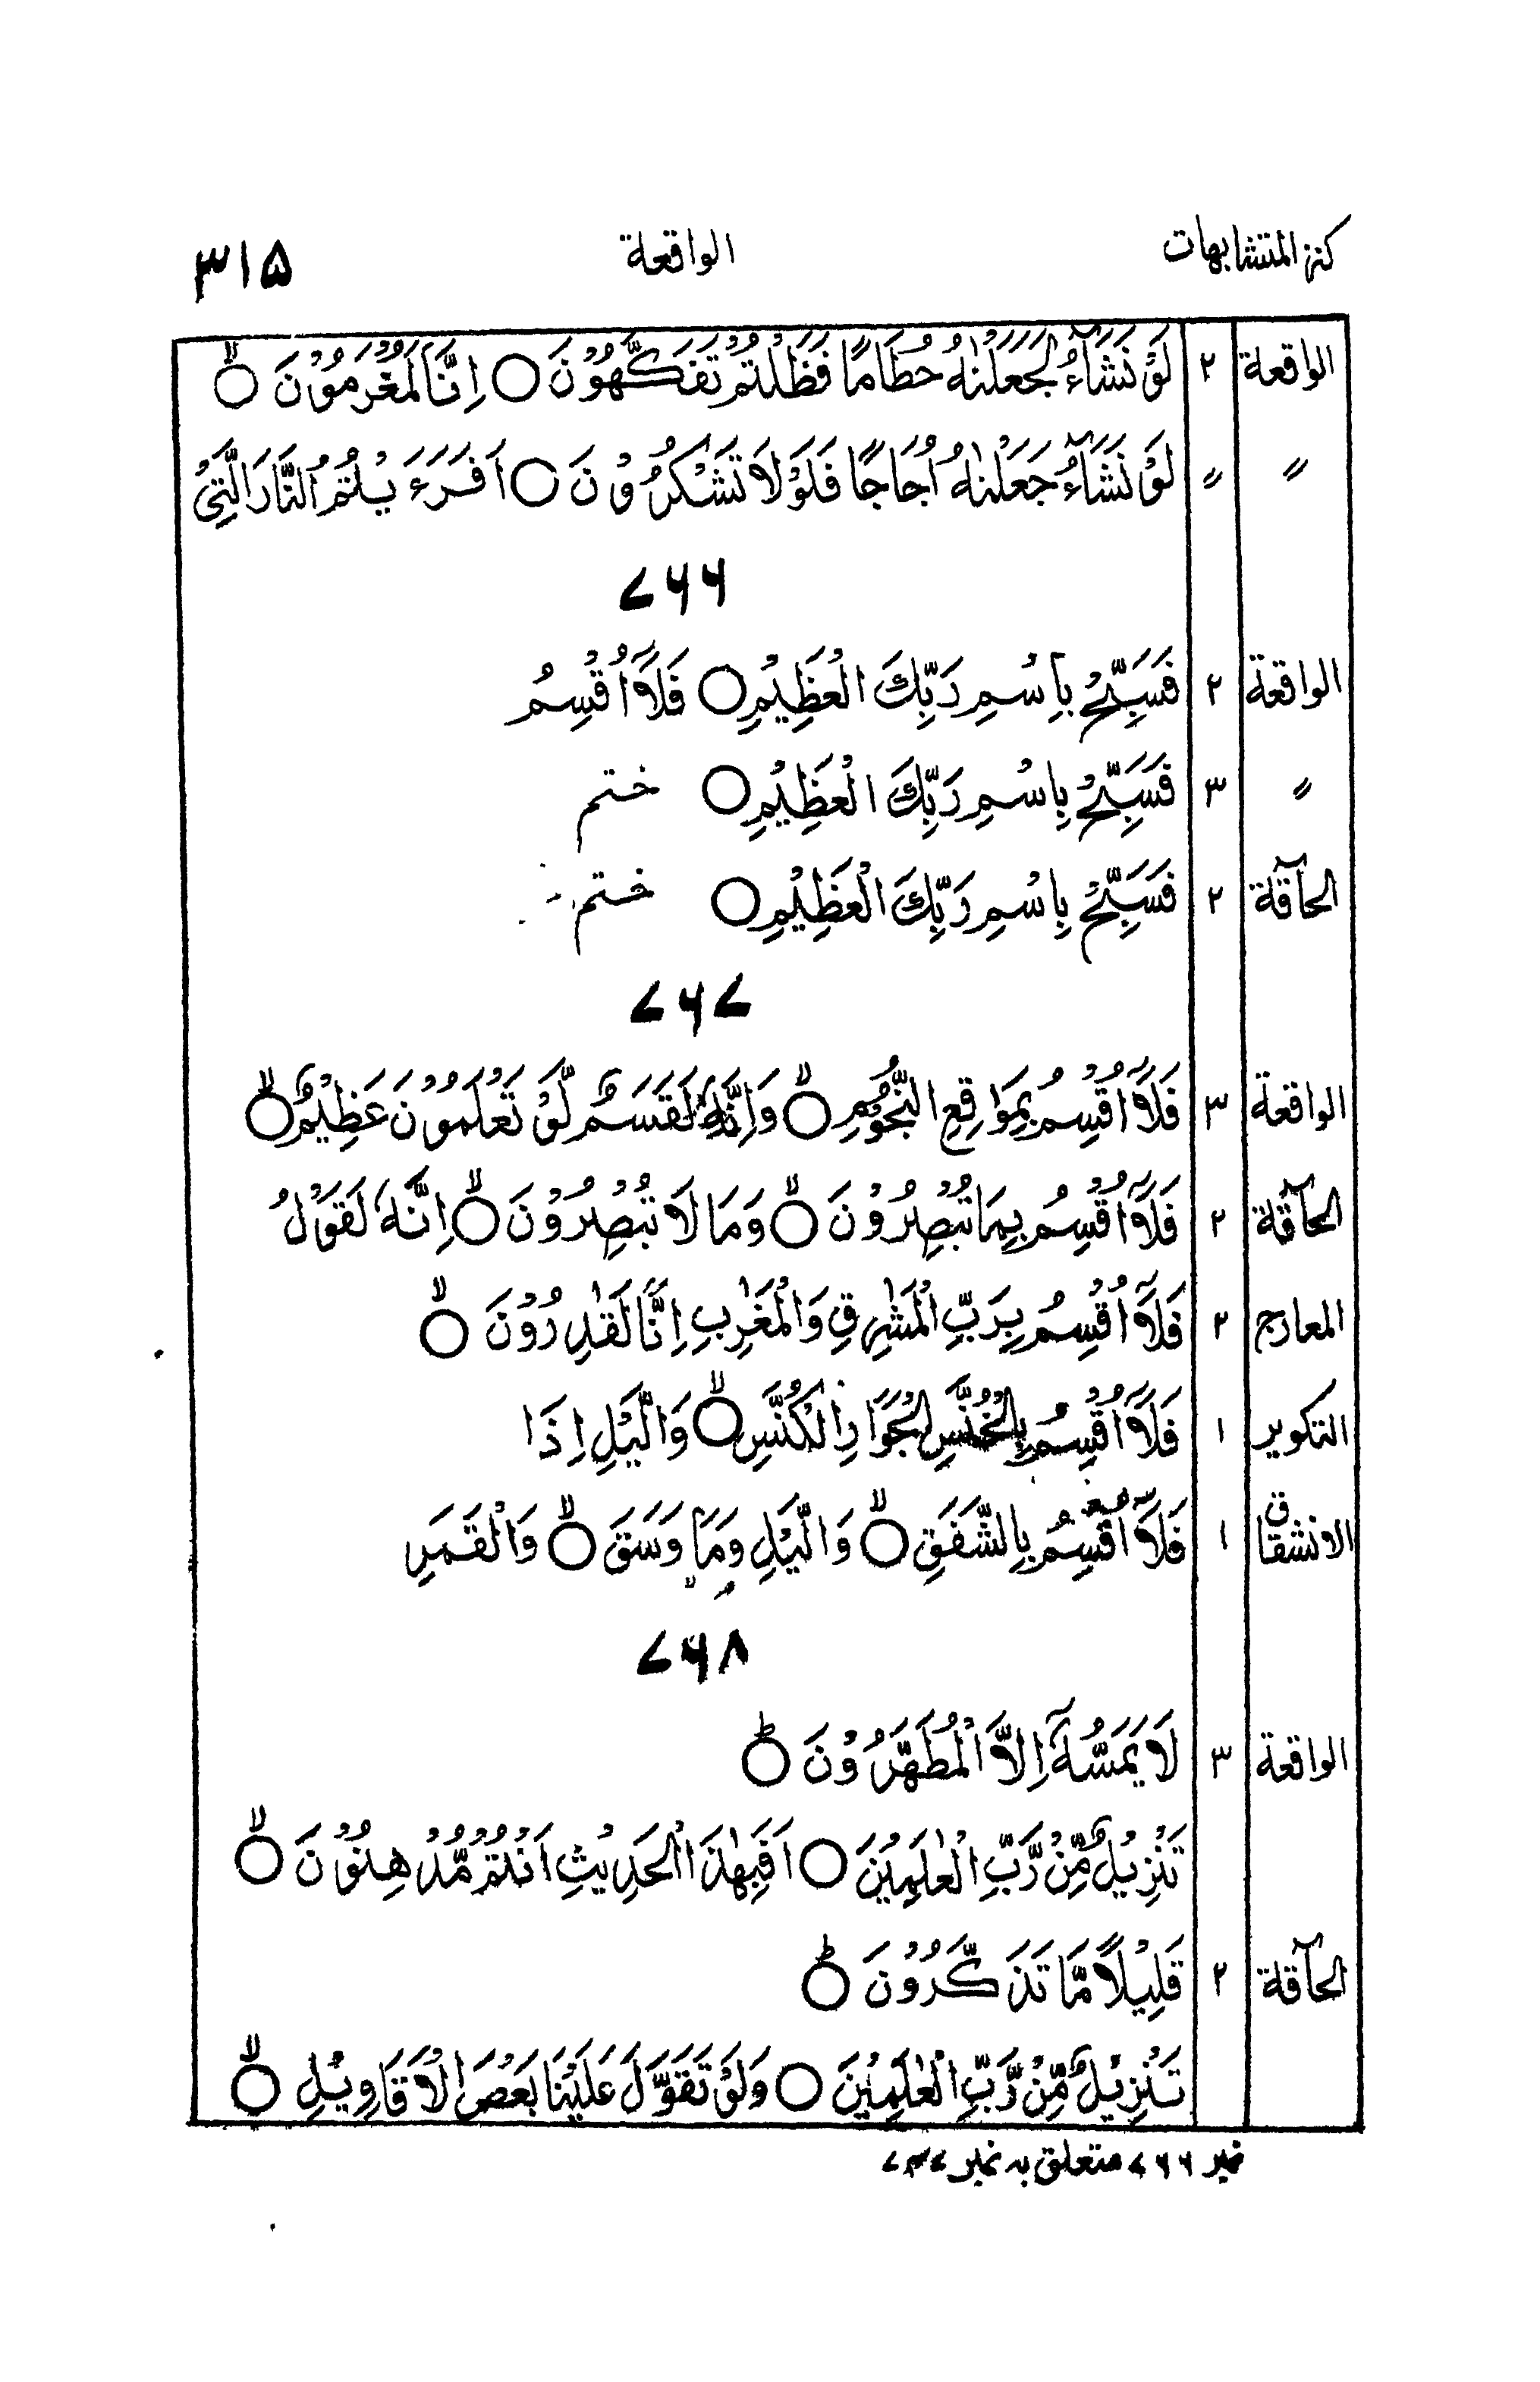 کنز المتشابہات الواقعة ۳۱۵
الواقعة ۲ لَوْ نَشَآءُ لَجَعَلْنٰهُ حُطَامًا فَظَلْتُمْ تَفَكَّهُوْنَ ○ اِنَّا لَمُغْرَمُوْنَ ○ۙ
〃 〃 لَوْ نَشَآءُ جَعَلْنٰهُ اُجَاجًا فَلَوْ لَا تَشْكُرُوْنَ ○ اَفَرَءَيْتُمُ النَّارَ الَّتِيْ
۷۶۶
الواقعة ۲ فَسَبِّحْ بِاسْمِ رَبِّكَ الْعَظِيْمِ ○ فَلَآ اُقْسِمُ
〃 ۳ فَسَبِّحْ بِاسْمِ رَبِّكَ الْعَظِيْمِ ○ ختم
الحآقة ۲ فَسَبِّحْ بِاسْمِ رَبِّكَ الْعَظِيْمِ ○ ختم
۷۶۷
الواقعة ۳ فَلَآ اُقْسِمُ بِمَوٰقِعِ النُّجُوْمِ ○ۙ وَاِنَّهٗ لَقَسَمٌ لَّوْ تَعْلَمُوْنَ عَظِيْمٌ ○ۙ
الحآقة ۲ فَلَآ اُقْسِمُ بِمَا تُبْصِرُوْنَ ○ۙ وَمَا لَا تُبْصِرُوْنَ ○ۙ اِنَّهٗ لَقَوْلُ
المعارج ۲ فَلَآ اُقْسِمُ بِرَبِّ الْمَشٰرِقِ وَالْمَغٰرِبِ اِنَّا لَقٰدِرُوْنَ ○ۙ
التكوير ۱ فَلَآ اُقْسِمُ بِالْخُنَّسِ الْجَوَارِ الْكُنَّسِ ○ۙ وَالَّيْلِ اِذَا
الانشقاق ۱ فَلَآ اُقْسِمُ بِالشَّفَقِ ○ۙ وَالَّيْلِ وَمَا وَسَقَ ○ۙ وَالْقَمَرِ
۷۶۸
الواقعة ۳ لَا يَمَسُّهٗٓ اِلَّا الْمُطَهَّرُوْنَ ○ؕ
تَنْزِيْلٌ مِّنْ رَّبِّ الْعٰلَمِيْنَ ○ اَفَبِهٰذَا الْحَدِيْثِ اَنْتُمْ مُّدْهِنُوْنَ ○ۙ
الحآقة ۲ قَلِيْلًا مَّا تَذَكَّرُوْنَ ○ؕ
تَنْزِيْلٌ مِّنْ رَّبِّ الْعٰلَمِيْنَ ○ وَلَوْ تَقَوَّلَ عَلَيْنَا بَعْضَ الْاَقَاوِيْلِ ○ۙ
نمبر ۷۶۶ متعلق بہ نمبر